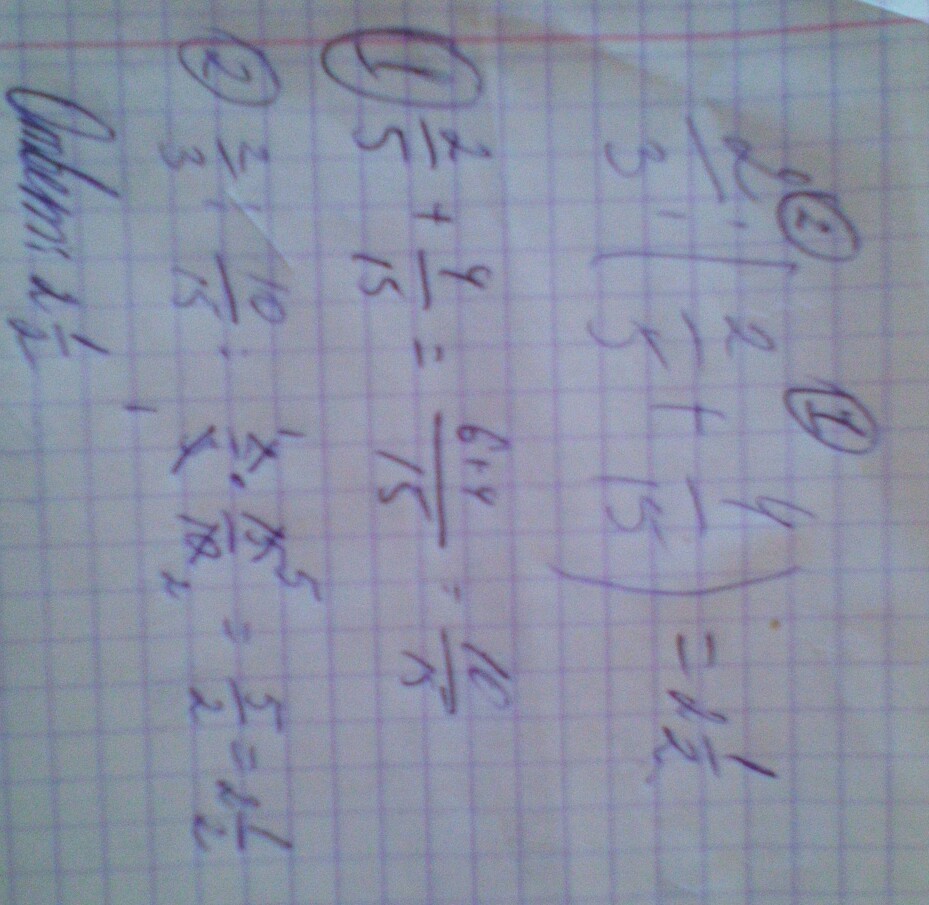 ② ①
2/3 : (2/5 + 4/15) = 2 1/2
① 2/5 + 4/15 = 6+4/15 = 10/15
② 2/3 : 10/15 = 15/10 = 5/2 = 2 1/2
Ответ: 2 1/2